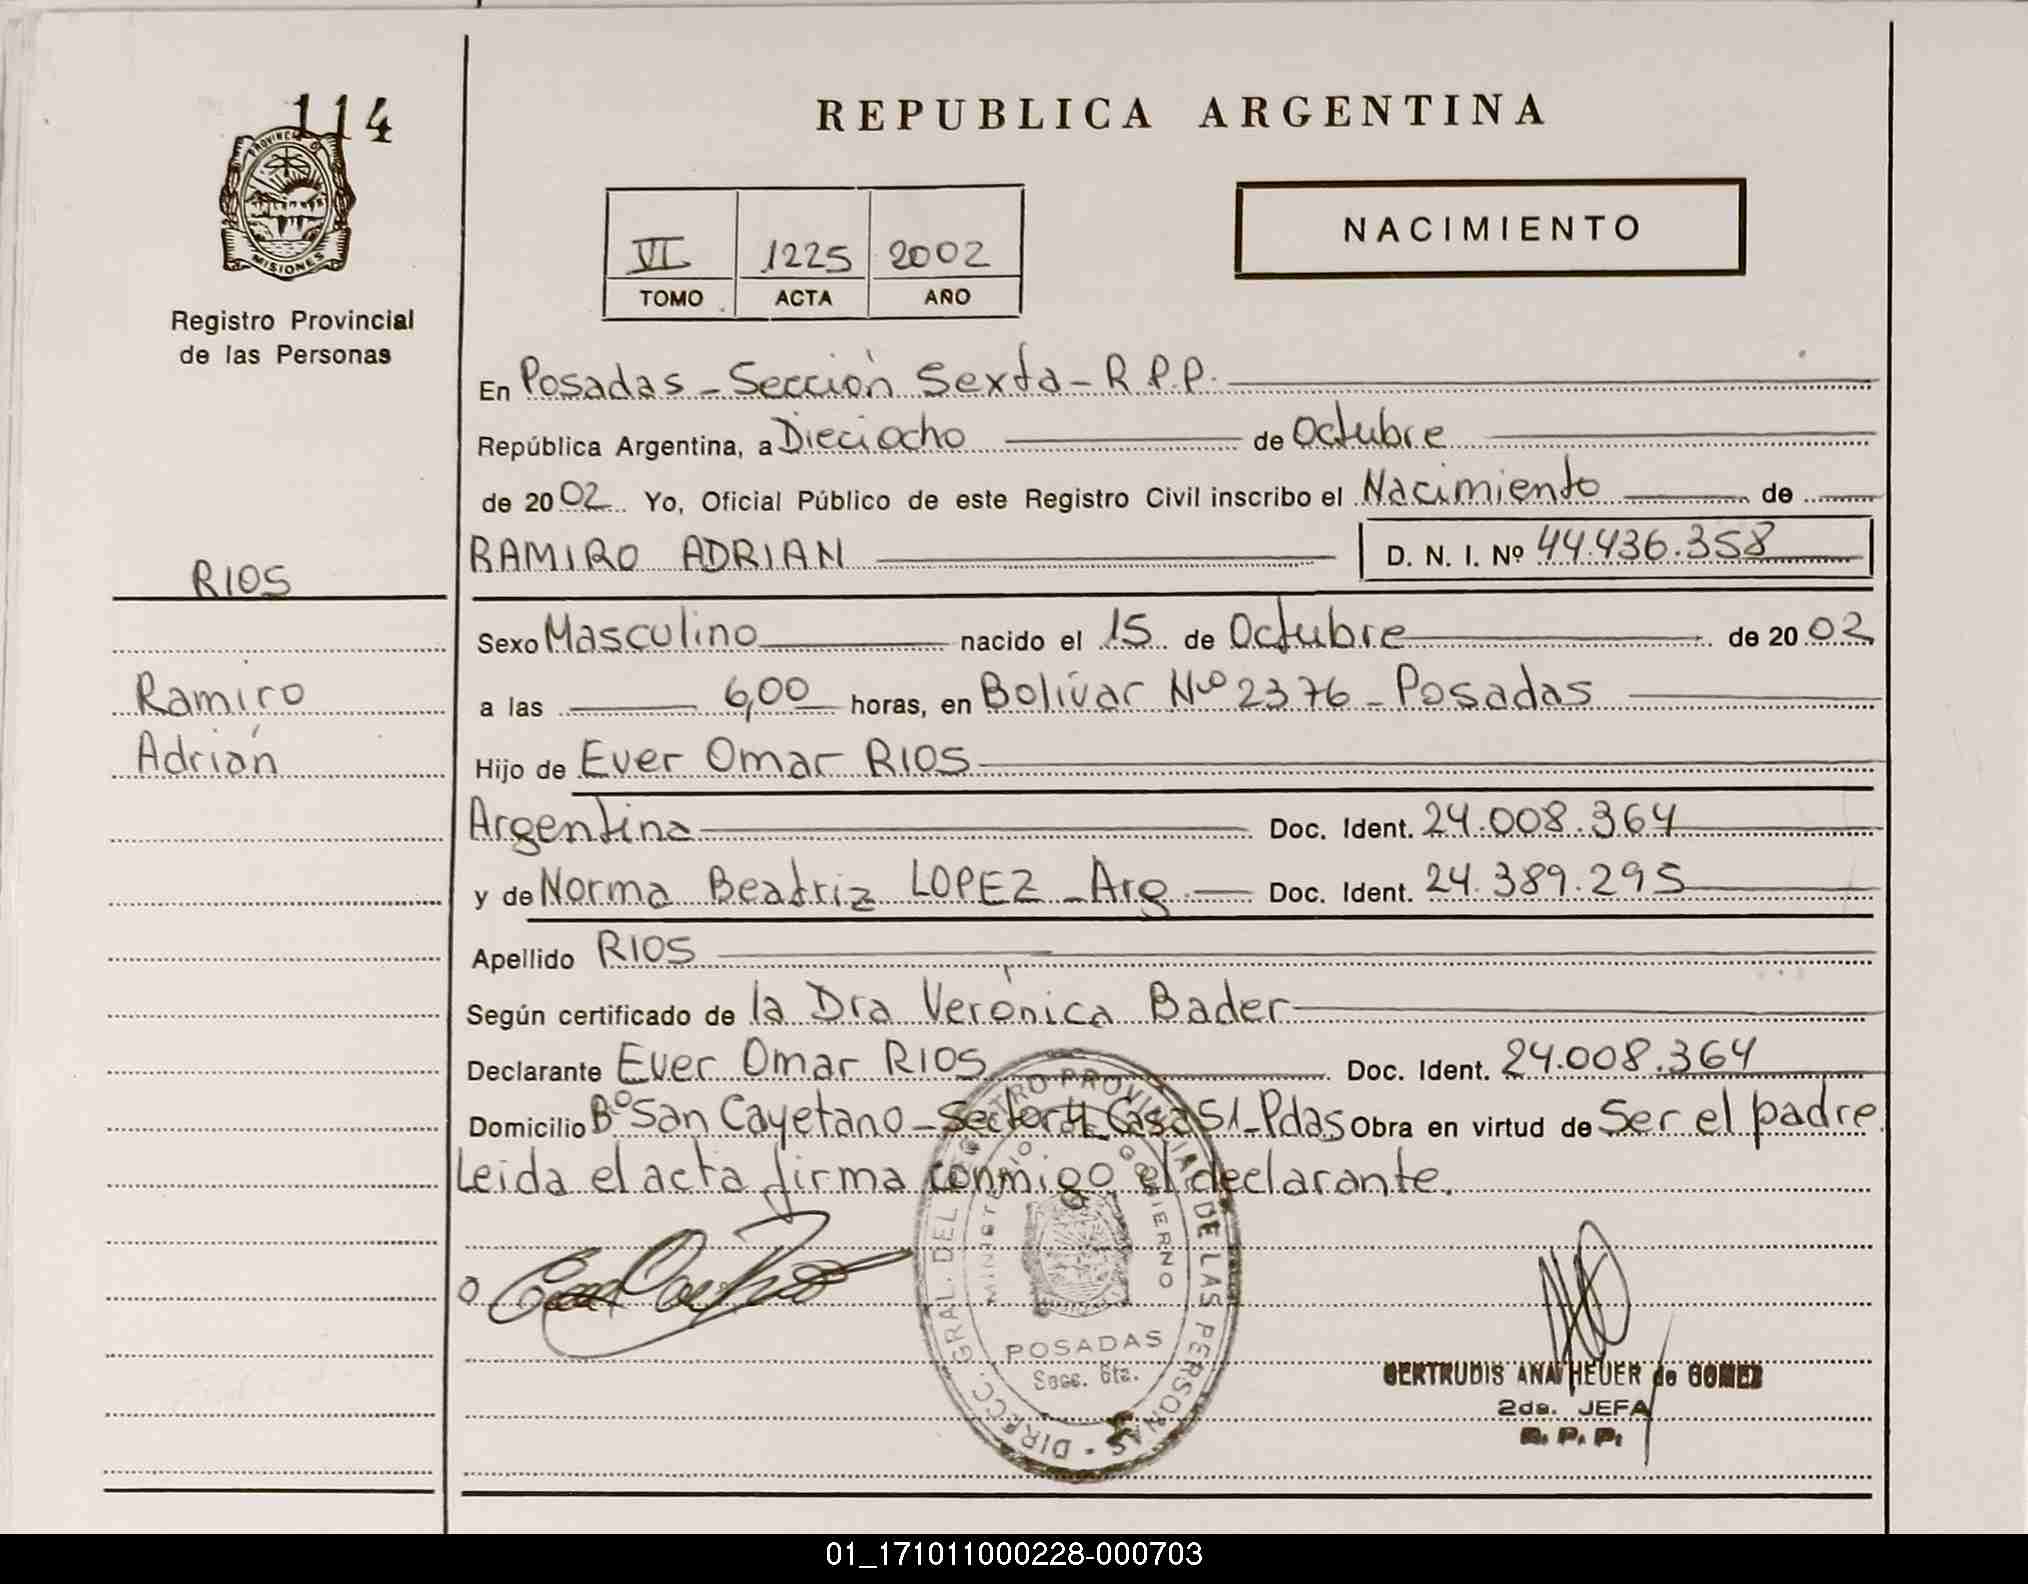 114
PROVINCIA DE
MISIONES
Registro Provincial
de las Personas
RIOS
Ramiro
Adrián
REPUBLICA ARGENTINA
VI 1225 2002
TOMO ACTA AÑO
NACIMIENTO
En Posadas - Sección Sexta - R.P.P.
República Argentina, a Dieciocho de Octubre
de 2002 Yo, Oficial Público de este Registro Civil inscribo el Nacimiento de
RAMIRO ADRIAN D. N. I. Nº 44.436.358
Sexo Masculino nacido el 15 de Octubre de 2002
a las 6,00 horas, en Bolívar Nº 2376 - Posadas
Hijo de Ever Omar RIOS
Argentina Doc. Ident. 24.008.364
y de Norma Beatriz LOPEZ - Arg. Doc. Ident. 24.389.295
Apellido RIOS
Según certificado de la Dra Verónica Bader
Declarante Ever Omar RIOS Doc. Ident. 24.008.364
Domicilio Bº San Cayetano - Sector 4 Casa 51 - Pdas Obra en virtud de Ser el padre.
Leida el acta firma conmigo el declarante.
DIRECC. GRAL. DEL REGISTRO PROVINCIAL DE LAS PERSONAS
MINISTERIO GOBIERNO
POSADAS
Secc. 6ta.
GERTRUDIS ANA HEUER de GOMEZ
2da. JEFA
R. P. P.
01_171011000228-000703